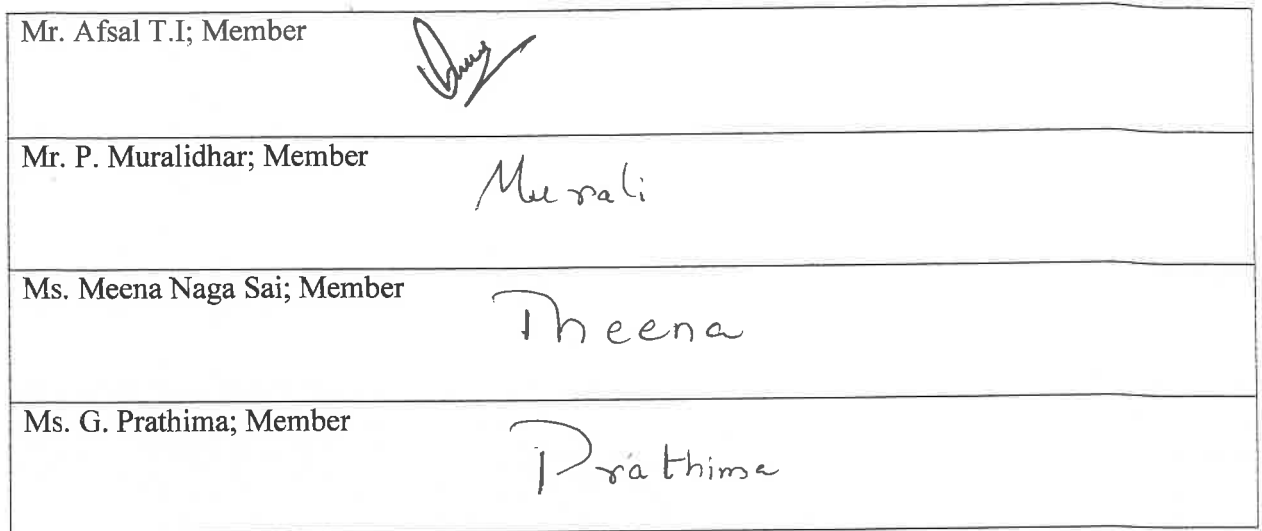 Mr. Afsal T.I; Member
Mr. P. Muralidhar; Member
Murali
Ms. Meena Naga Sai; Member
Meena
Ms. G. Prathima; Member
Prathima